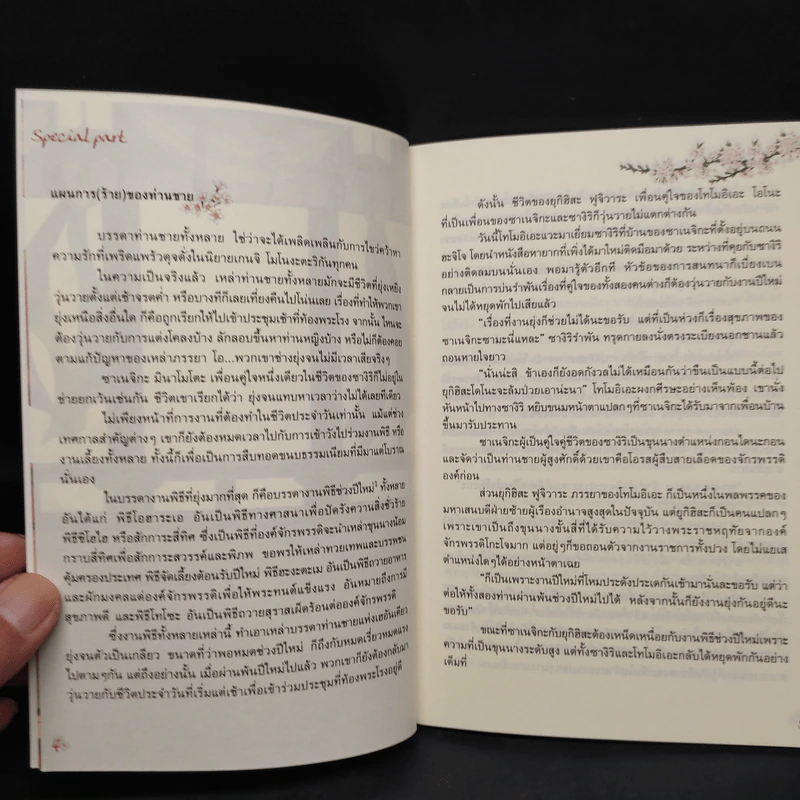 Special part
แผนการ(ร้าย)ของท่านชาย
บรรดาท่านชายทั้งหลาย ใช่ว่าจะได้เพลิดเพลินกับการไขว่คว้าหา
ความรักที่เพริดแพร้วดุจดั่งในนิยายเกนจิ โมโนงะตะริกันทุกคน
ในความเป็นจริงแล้ว เหล่าท่านชายทั้งหลายมักจะมีชีวิตที่ยุ่งเหยิง
วุ่นวายตั้งแต่เช้าจรดค่ำ หรือบางทีก็เลยเที่ยงคืนไปโน่นเลย เรื่องที่ทำให้พวกเขา
ยุ่งเหนือสิ่งอื่นใด ก็คือถูกเรียกให้ไปเข้าประชุมเช้าที่ท้องพระโรง จากนั้น ไหนจะ
ต้องวุ่นวายกับการแต่งโคลงบ้าง ลักลอบขึ้นหาท่านหญิงบ้าง หรือไม่ก็ต้องคอย
ตามแก้ปัญหาของเหล่าภรรยา โอ...พวกเขาช่างยุ่งจนไม่มีเวลาเสียจริงๆ
ซาเนจิกะ มินาโมโตะ เพื่อนคู่ใจหนึ่งเดียวในชีวิตของซางิริก็ไม่อยู่ใน
ข่ายยกเว้นเช่นกัน ชีวิตเขาเรียกได้ว่า ยุ่งจนแทบหาเวลาว่างไม่ได้เลยทีเดียว
ไม่เพียงหน้าที่การงานที่ต้องทำในชีวิตประจำวันเท่านั้น แม้แต่ช่วง
เทศกาลสำคัญต่างๆ เขาก็ยังต้องหมดเวลาไปกับการเข้าวังไปร่วมงานพิธี หรือ
งานเลี้ยงทั้งหลาย ทั้งนี้ก็เพื่อเป็นการสืบทอดขนบธรรมเนียมที่มีมาแต่โบราณ
นั่นเอง
ในบรรดางานพิธีที่ยุ่งมากที่สุด ก็คือบรรดางานพิธีช่วงปีใหม่¹ ทั้งหลาย
อันได้แก่ พิธีโอฮาระเอ อันเป็นพิธีทางศาสนาเพื่อปัดรังความสิ่งชั่วร้าย
พิธีชิโฮไฮ หรือสักการะสี่ทิศ ซึ่งเป็นพิธีที่องค์จักรพรรดิจะนำเหล่าขุนนางน้อม
กราบสี่ทิศเพื่อสักการะสวรรค์และพิภพ ขอพรให้เหล่าทวยเทพและบรรพชน
คุ้มครองประเทศ พิธีจัดเลี้ยงต้อนรับปีใหม่ พิธีฮะงะตะเมะ อันเป็นพิธีถวายอาหาร
และผักมงคลแด่องค์จักรพรรดิเพื่อให้พระทนต์แข็งแรง อันหมายถึงการมี
สุขภาพดี และพิธีโทโซะ อันเป็นพิธีถวายสุราสเผ็ดร้อนต่อองค์จักรพรรดิ
ซึ่งงานพิธีทั้งหลายเหล่านี้ ทำเอาเหล่าบรรดาท่านชายแห่งเฮอันเคียว
ยุ่งจนตัวเป็นเกลียว ขนาดที่ว่าพอหมดช่วงปีใหม่ ก็ถึงกับหมดเรี่ยวหมดแรง
ไปตามๆกัน แต่ถึงอย่างนั้น เมื่อผ่านพ้นปีใหม่ไปแล้ว พวกเขาก็ยังต้องกลับมา
วุ่นวายกับชีวิตประจำวันที่เริ่มแต่เช้าเพื่อเข้าร่วมประชุมที่ท้องพระโรงอยู่ดี
ดังนั้น ชีวิตของยุกิฮิสะ ฟุจิวาระ เพื่อนคู่ใจของโทโมอิเอะ โอโนะ
ที่เป็นเพื่อนของซาเนจิกะและซางิริก็วุ่นวายไม่แตกต่างกัน
วันนี้โทโมอิเอะแวะมาเยี่ยมซางิริที่บ้านของซาเนจิกะที่ตั้งอยู่บนถนน
ฮะจิโจ โดยนำหนังสือหายากที่เพิ่งได้มาใหม่ติดมือมาด้วย ระหว่างที่คุยกับซางิริ
อย่างติดลมบนนั่นเอง พอมารู้ตัวอีกที หัวข้อของการสนทนาก็เบี่ยงเบน
กลายเป็นการบ่นรำพันเรื่องที่คู่ใจของทั้งสองคนต่างก็ต้องวุ่นวายกับงานปีใหม่
จนไม่ได้หยุดพักไปเสียแล้ว
“เรื่องที่งานยุ่งก็ช่วยไม่ได้นะขอรับ แต่ที่เป็นห่วงก็เรื่องสุขภาพของ
ซาเนจิกะซามะนี่แหละ” ซางิริรำพัน ทรุดกายลงนั่งตรงระเบียงนอกชานแล้ว
ถอนหายใจยาว
“นั่นน่ะสิ ข้าเองก็ยังอดกังวลไม่ได้เหมือนกันว่าขืนเป็นแบบนี้ต่อไป
ยุกิฮิสะโดโนะจะล้มป่วยเอาน่ะนา” โทโมอิเอะผงกศีรษะอย่างเห็นพ้อง เขานั่ง
หันหน้าไปทางซางิริ หยิบขนมหน้าตาแปลกๆที่ซาเนจิกะได้รับมาจากเพื่อนบ้าน
ขึ้นมารับประทาน
ซาเนจิกะผู้เป็นคู่ใจคู่ชีวิตของซางิริเป็นขุนนางตำแหน่งกอนไดนะกอน
และจัดว่าเป็นท่านชายผู้สูงศักดิ์ด้วยเขาคือโอรสผู้สืบสายเลือดของจักรพรรดิ
องค์ก่อน
ส่วนยุกิฮิสะ ฟุจิวาระ ภรรยาของโทโมอิเอะ ก็เป็นหนึ่งในพลพรรคของ
มหาเสนบดีฝ่ายซ้ายผู้เรืองอำนาจสูงสุดในปัจจุบัน แต่ยูกิฮิสะก็เป็นคนแปลกๆ
เพราะเขาเป็นถึงขุนนางขั้นสี่ที่ได้รับความไว้วางพระราชหฤทัยจากองค์
จักรพรรดิโกะไจมาก แต่อยู่ๆก็ขอถอนตัวจากงานราชการทั้งปวง โดยไม่แยแส
ตำแหน่งใดๆด้วยอย่างหน้าตาเฉย
“ก็เป็นเพราะงานปีใหม่ที่โหมประดังประเดกันเข้ามานั่นละขอรับ แต่ว่า
ต่อให้ทั้งสองท่านผ่านพ้นช่วงปีใหม่ไปได้ หลังจากนั้นก็ยังงานยุ่งกันอยู่ดีนะ
ขอรับ”
ขณะที่ซาเนจิกะกับยุกิฮิสะต้องเหน็ดเหนื่อยกับงานพิธีช่วงปีใหม่เพราะ
ความที่เป็นขุนนางระดับสูง แต่ทั้งซางิริและโทโมอิเอะกลับได้หยุดพักกันอย่าง
เต็มที่